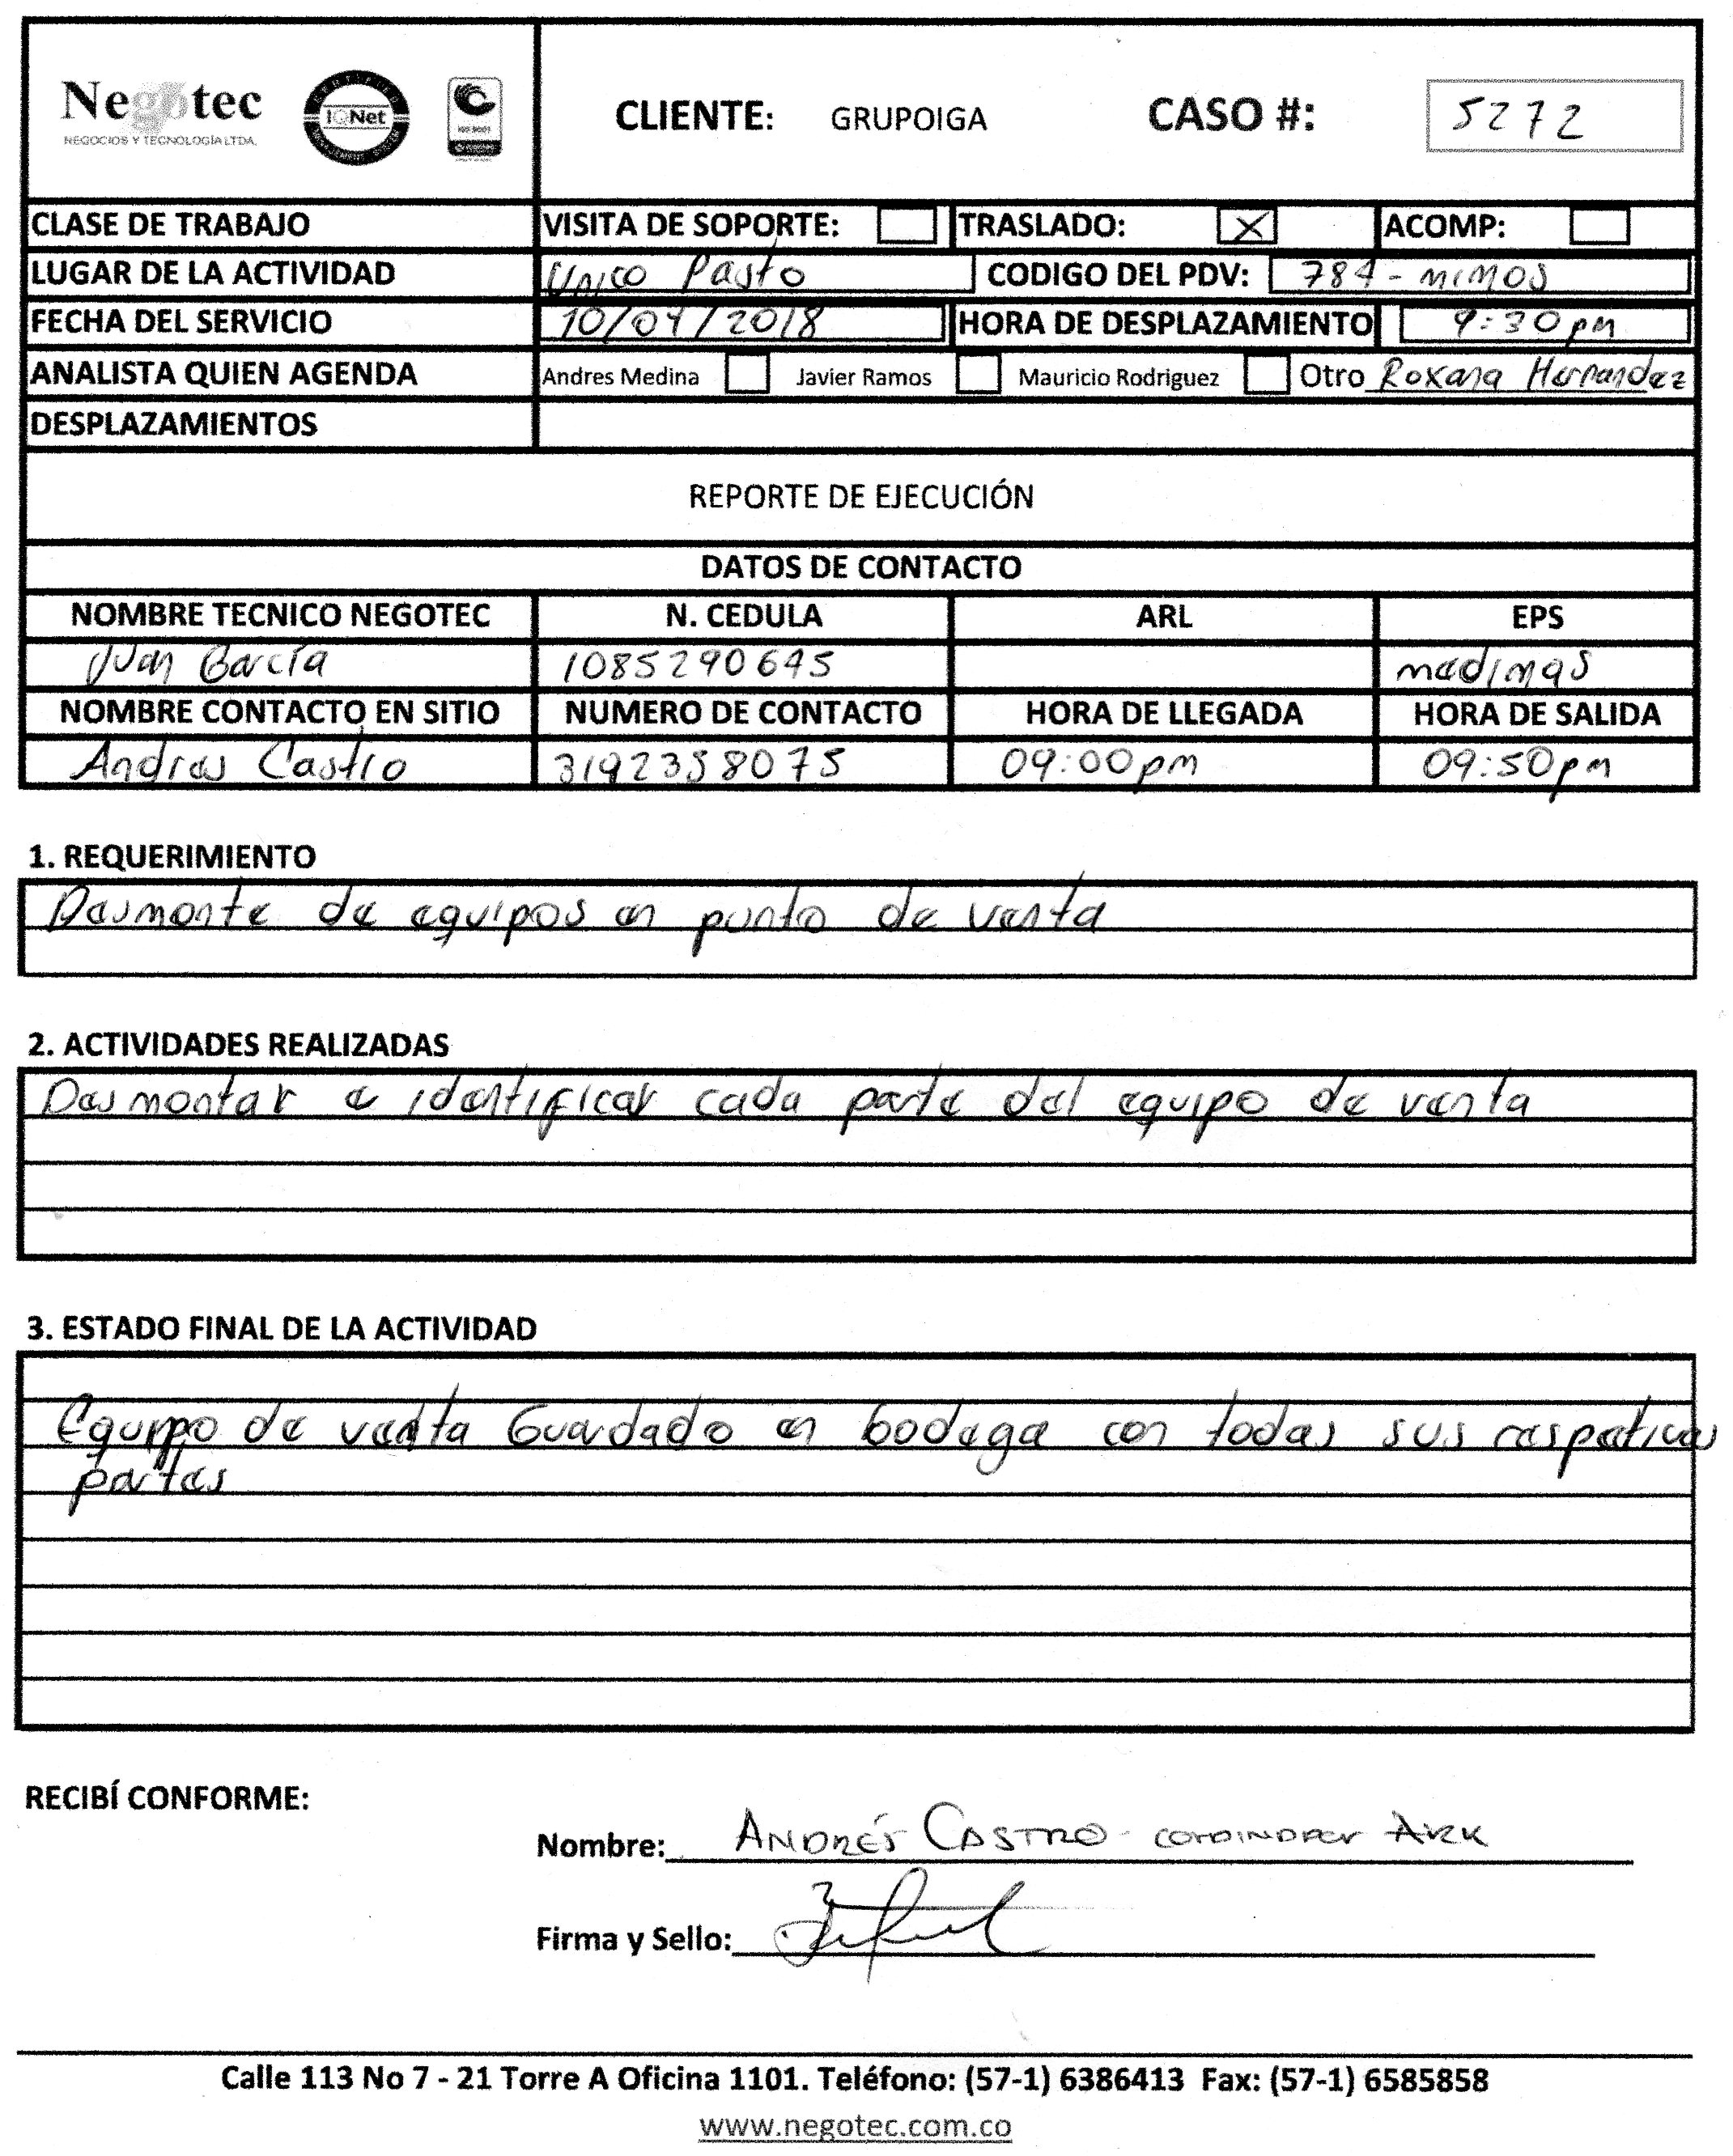 Negotec
NEGOCIOS Y TECNOLOGÍA LTDA.
IQNet
ISO 9001
CLIENTE: GRUPOIGA CASO #: 5272
CLASE DE TRABAJO VISITA DE SOPORTE: TRASLADO: X ACOMP:
LUGAR DE LA ACTIVIDAD Unico Pasto CODIGO DEL PDV: 784 - mimos
FECHA DEL SERVICIO 10/04/2018 HORA DE DESPLAZAMIENTO 9:30 pm
ANALISTA QUIEN AGENDA Andres Medina Javier Ramos Mauricio Rodriguez Otro Roxana Hernandez
DESPLAZAMIENTOS
REPORTE DE EJECUCIÓN
DATOS DE CONTACTO
NOMBRE TECNICO NEGOTEC N. CEDULA ARL EPS
Juan García 1085290645 medimas
NOMBRE CONTACTO EN SITIO NUMERO DE CONTACTO HORA DE LLEGADA HORA DE SALIDA
Andres Castro 3192358075 09:00 pm 09:50 pm
1. REQUERIMIENTO
Desmonte de equipos en punto de venta
2. ACTIVIDADES REALIZADAS
Desmontar e identificar cada parte del equipo de venta
3. ESTADO FINAL DE LA ACTIVIDAD
Equipo de venta Guardado en bodega con todas sus respetivas
partes
RECIBÍ CONFORME:
Nombre: ANDRÉS CASTRO - COORDINADOR ARK
Firma y Sello:
Calle 113 No 7 - 21 Torre A Oficina 1101. Teléfono: (57-1) 6386413 Fax: (57-1) 6585858
www.negotec.com.co